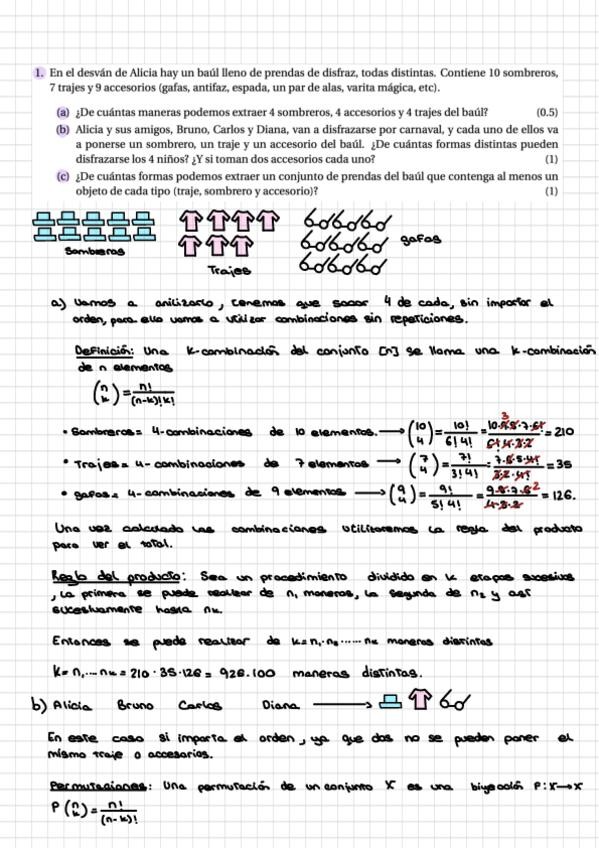 1. En el desván de Alicia hay un baúl lleno de prendas de disfraz, todas distintas. Contiene 10 sombreros,
7 trajes y 9 accesorios (gafas, antifaz, espada, un par de alas, varita mágica, etc).
(a) ¿De cuántas maneras podemos extraer 4 sombreros, 4 accesorios y 4 trajes del baúl? (0.5)
(b) Alicia y sus amigos, Bruno, Carlos y Diana, van a disfrazarse por carnaval, y cada uno de ellos va
a ponerse un sombrero, un traje y un accesorio del baúl. ¿De cuántas formas distintas pueden
disfrazarse los 4 niños? ¿Y si toman dos accesorios cada uno? (1)
(c) ¿De cuántas formas podemos extraer un conjunto de prendas del baúl que contenga al menos un
objeto de cada tipo (traje, sombrero y accesorio)? (1)
Sombreros Trajes gafas
a) Vamos a anilizarlo, tenemos que sacar 4 de cada, sin importar el
orden, para ello vamos a utilizar combinaciones sin repeticiones.
Definición: Una k-combinación del conjunto [n] se llama una k-combinación
de n elementos
(n k) = n!/(n-k)!k!
• Sombreros = 4-combinaciones de 10 elementos. → (10 4) = 10!/6!4! = 10·9·8·7·6!/6!·4·3·2 = 210
• Trajes = 4-combinaciones de 7 elementos → (7 4) = 7!/3!4! = 7·6·5·4!/3·2·4! = 35
• gafas = 4-combinaciones de 9 elementos → (9 4) = 9!/5!4! = 9·8·7·6/4·3·2 = 126.
Una vez calculado las combinaciones utilizaremos la regla del producto
para ver el total.
Regla del producto: Sea un procedimiento dividido en k etapas sucesivas
, la primera se puede realizar de n₁ maneras, la segunda de n₂ y así
sucesivamente hasta nₖ.
Entonces se puede realizar de k = n₁·n₂······nₖ maneras distintas
k = n₁···nₖ = 210·35·126 = 926.100 maneras distintas.
b) Alicia Bruno Carlos Diana →
En este caso si importa el orden, ya que dos no se pueden poner el
mismo traje o accesorios.
Permutaciones: Una permutación de un conjunto X es una biyección P: X→X
P(n k) = n!/(n-k)!